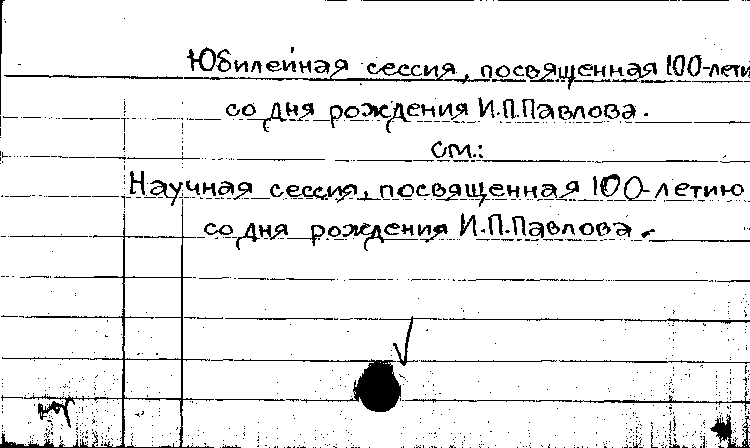 Юбилейная сессия, посвященная 100-лети
со дня рождения И.П.Павлова.
см.:
Научная сессия, посвященная 100-летию
со дня рождения И.П.Павлова.